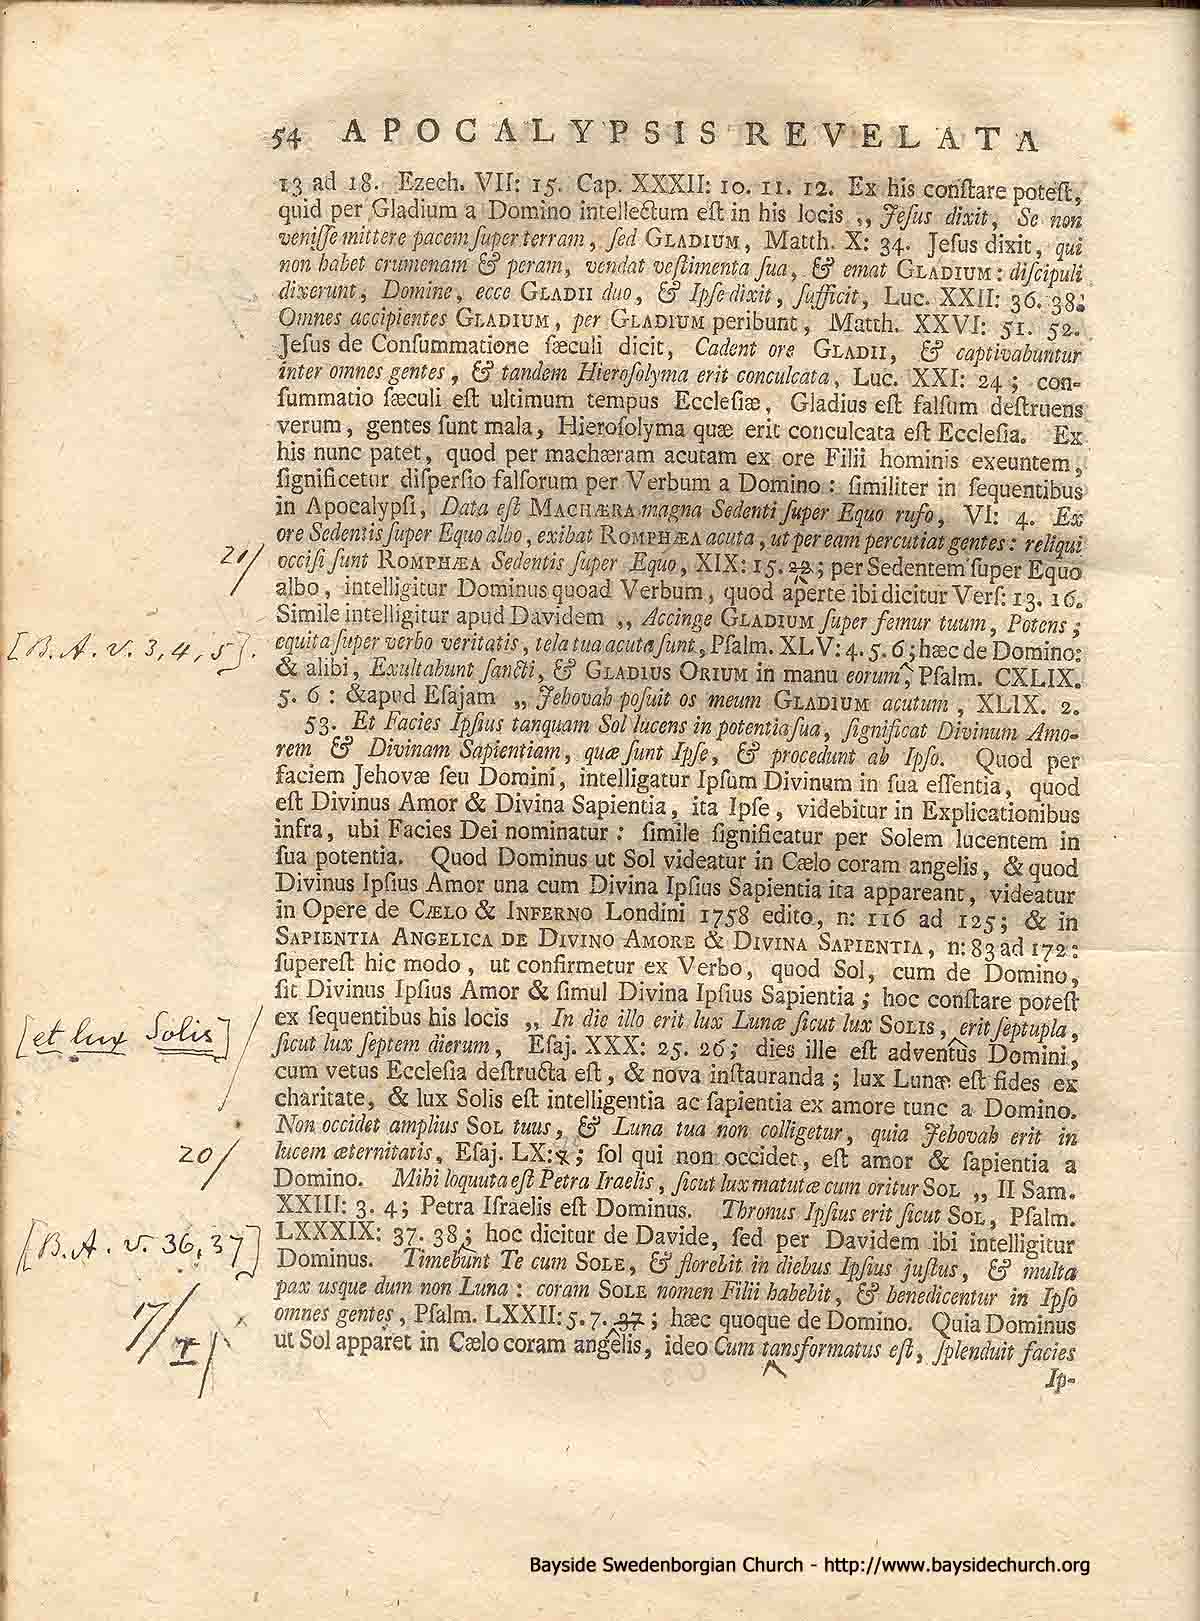 54 APOCALYPSIS REVELATA
13 ad 18. Ezech. VII: 15. Cap. XXXII: 10. 11. 12. Ex his conſtare poteſt,
quid per Gladium a Domino intellectum eſt in his locis ,, Jeſus dixit, Se non
veniſſe mittere pacem ſuper terram, ſed GLADIUM, Matth. X: 34. Jeſus dixit, qui
non habet crumenam & peram, vendat veſtimenta ſua, & emat GLADIUM: diſcipuli
dixerunt, Domine, ecce GLADII duo, & Ipſe dixit, ſufficit, Luc. XXII: 36. 38.
Omnes accipientes GLADIUM, per GLADIUM peribunt, Matth. XXVI: 51. 52.
Jeſus de Conſummatione ſæculi dicit, Cadent ore GLADII, & captivabuntur
inter omnes gentes, & tandem Hieroſolyma erit conculcata, Luc. XXI: 24; con-
ſummatio ſæculi eſt ultimum tempus Eccleſiæ, Gladius eſt falſum deſtruens
verum, gentes ſunt mala, Hieroſolyma quæ erit conculcata eſt Eccleſia. Ex
his nunc patet, quod per machæram acutam ex ore Filii hominis exeuntem,
ſignificetur diſperſio falſorum per Verbum a Domino: ſimiliter in ſequentibus
in Apocalypſi, Data eſt MACHÆRA magna Sedenti ſuper Equo rufo, VI: 4. Ex
ore Sedentis ſuper Equo albo, exibat ROMPHÆA acuta, ut per eam percutiat gentes: reliqui
21/ occiſi ſunt ROMPHÆA Sedentis ſuper Equo, XIX: 15. 22; per Sedentem ſuper Equo
albo, intelligitur Dominus quoad Verbum, quod aperte ibi dicitur Verſ: 13. 16.
Simile intelligitur apud Davidem ,, Accinge GLADIUM ſuper femur tuum, Potens;
[B. A. v. 3, 4, 5]. equita ſuper verbo veritatis, tela tua acuta ſunt, Pſalm. XLV: 4. 5. 6; hæc de Domino:
& alibi, Exultabunt ſancti, & GLADIUS ORIUM in manu eorum, Pſalm. CXLIX.
5. 6: & apud Eſajam ,, Jehovah poſuit os meum GLADIUM acutum, XLIX. 2.
53. Et Facies Ipſius tanquam Sol lucens in potentia ſua, ſignificat Divinum Amo-
rem & Divinam Sapientiam, quæ ſunt Ipſe, & procedunt ab Ipſo. Quod per
faciem Jehovæ ſeu Domini, intelligatur Ipſum Divinum in ſua eſſentia, quod
eſt Divinus Amor & Divina Sapientia, ita Ipſe, videbitur in Explicationibus
infra, ubi Facies Dei nominatur: ſimile ſignificatur per Solem lucentem in
ſua potentia. Quod Dominus ut Sol videatur in Cælo coram angelis, & quod
Divinus Ipſius Amor una cum Divina Ipſius Sapientia ita appareant, videatur
in Opere de CÆLO & INFERNO Londini 1758 edito, n: 116 ad 125; & in
SAPIENTIA ANGELICA DE DIVINO AMORE & DIVINA SAPIENTIA, n: 83 ad 172:
ſupereſt hic modo, ut confirmetur ex Verbo, quod Sol, cum de Domino,
ſit Divinus Ipſius Amor & ſimul Divina Ipſius Sapientia; hoc conſtare poteſt
[et lux Solis]/ ex ſequentibus his locis ,, In die illo erit lux Lunæ ſicut lux SOLIS, erit ſeptupla,
ſicut lux ſeptem dierum, Eſaj. XXX: 25. 26; dies ille eſt adventus Domini,
cum vetus Eccleſia deſtructa eſt, & nova inſtauranda; lux Lunæ eſt fides ex
charitate, & lux Solis eſt intelligentia ac ſapientia ex amore tunc a Domino.
Non occidet amplius SOL tuus, & Luna tua non colligetur, quia Jehovah erit in
20/ lucem æternitatis, Eſaj. LX: ; ſol qui non occidet, eſt amor & ſapientia a
Domino. Mihi loquuta eſt Petra Iraelis, ſicut lux matutæ cum oritur SOL ,, II Sam.
XXIII: 3. 4; Petra Iſraelis eſt Dominus. Thronus Ipſius erit ſicut SOL, Pſalm.
[B. A. v. 36, 37] LXXXIX: 37. 38; hoc dicitur de Davide, ſed per Davidem ibi intelligitur
Dominus. Timebunt Te cum SOLE, & florebit in diebus Ipſius juſtus, & multa
pax usque dum non Luna: coram SOLE nomen Filii habebit, & benedicentur in Ipſo
17/ omnes gentes, Pſalm. LXXII: 5. 7. 37; hæc quoque de Domino. Quia Dominus
r/ ut Sol apparet in Cælo coram angelis, ideo Cum tansformatus eſt, ſplenduit facies
Ip-
Bayside Swedenborgian Church - http://www.baysidechurch.org